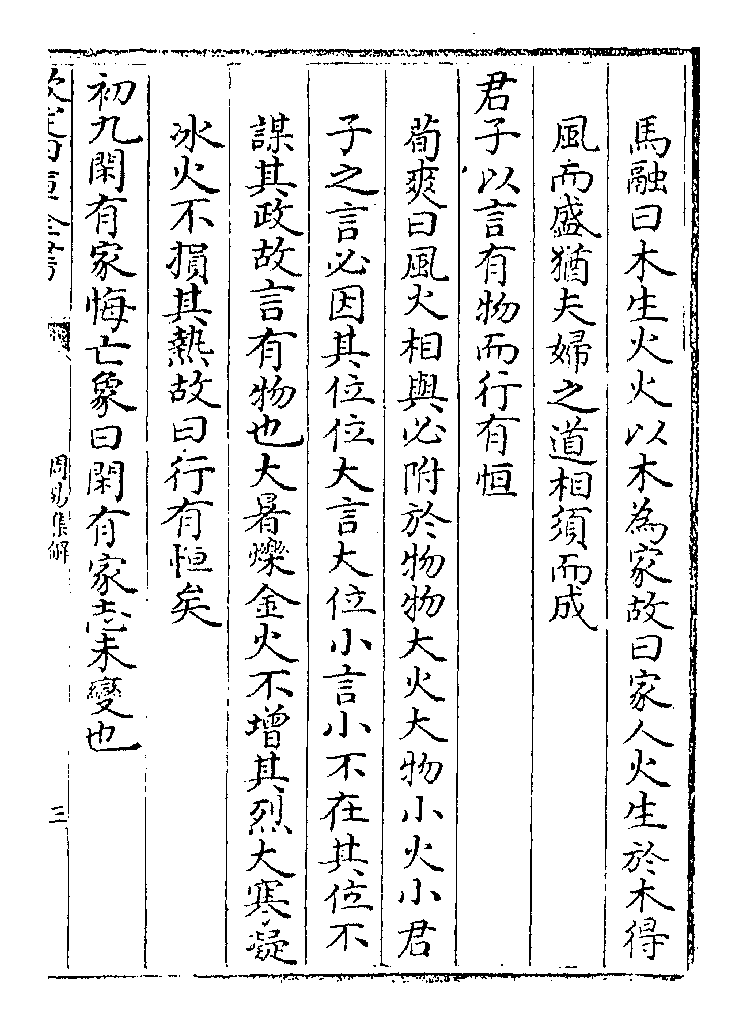 馬融曰木生火火以木為家故曰家人火生於木得
風而盛猶夫婦之道相須而成
君子以言有物而行有恒
荀爽曰風火相與必附於物物大火大物小火小君
子之言必因其位位大言大位小言小不在其位不
謀其政故言有物也大暑爍金火不增其烈大寒凝
冰火不損其熱故曰行有恒矣
初九閑有家悔亡象曰閑有家志未變也
欽定四庫全書
周易集解
三